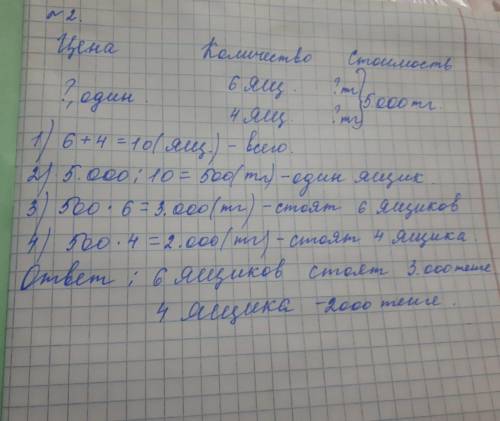 №2.
Цена Количество Стоимость
6 ящ. ?тг
?, один. 5000тг.
4 ящ ?тг
1) 6+4=10(ящ.)-всего.
2) 5.000:10=500(тг)-один ящик.
3) 500·6=3.000(тг)-стоят 6 ящиков
4) 500·4=2.000(тг)-стоят 4 ящика
Ответ: 6 ящиков стоят 3.000тенге
4 ящика -2000 тенге.